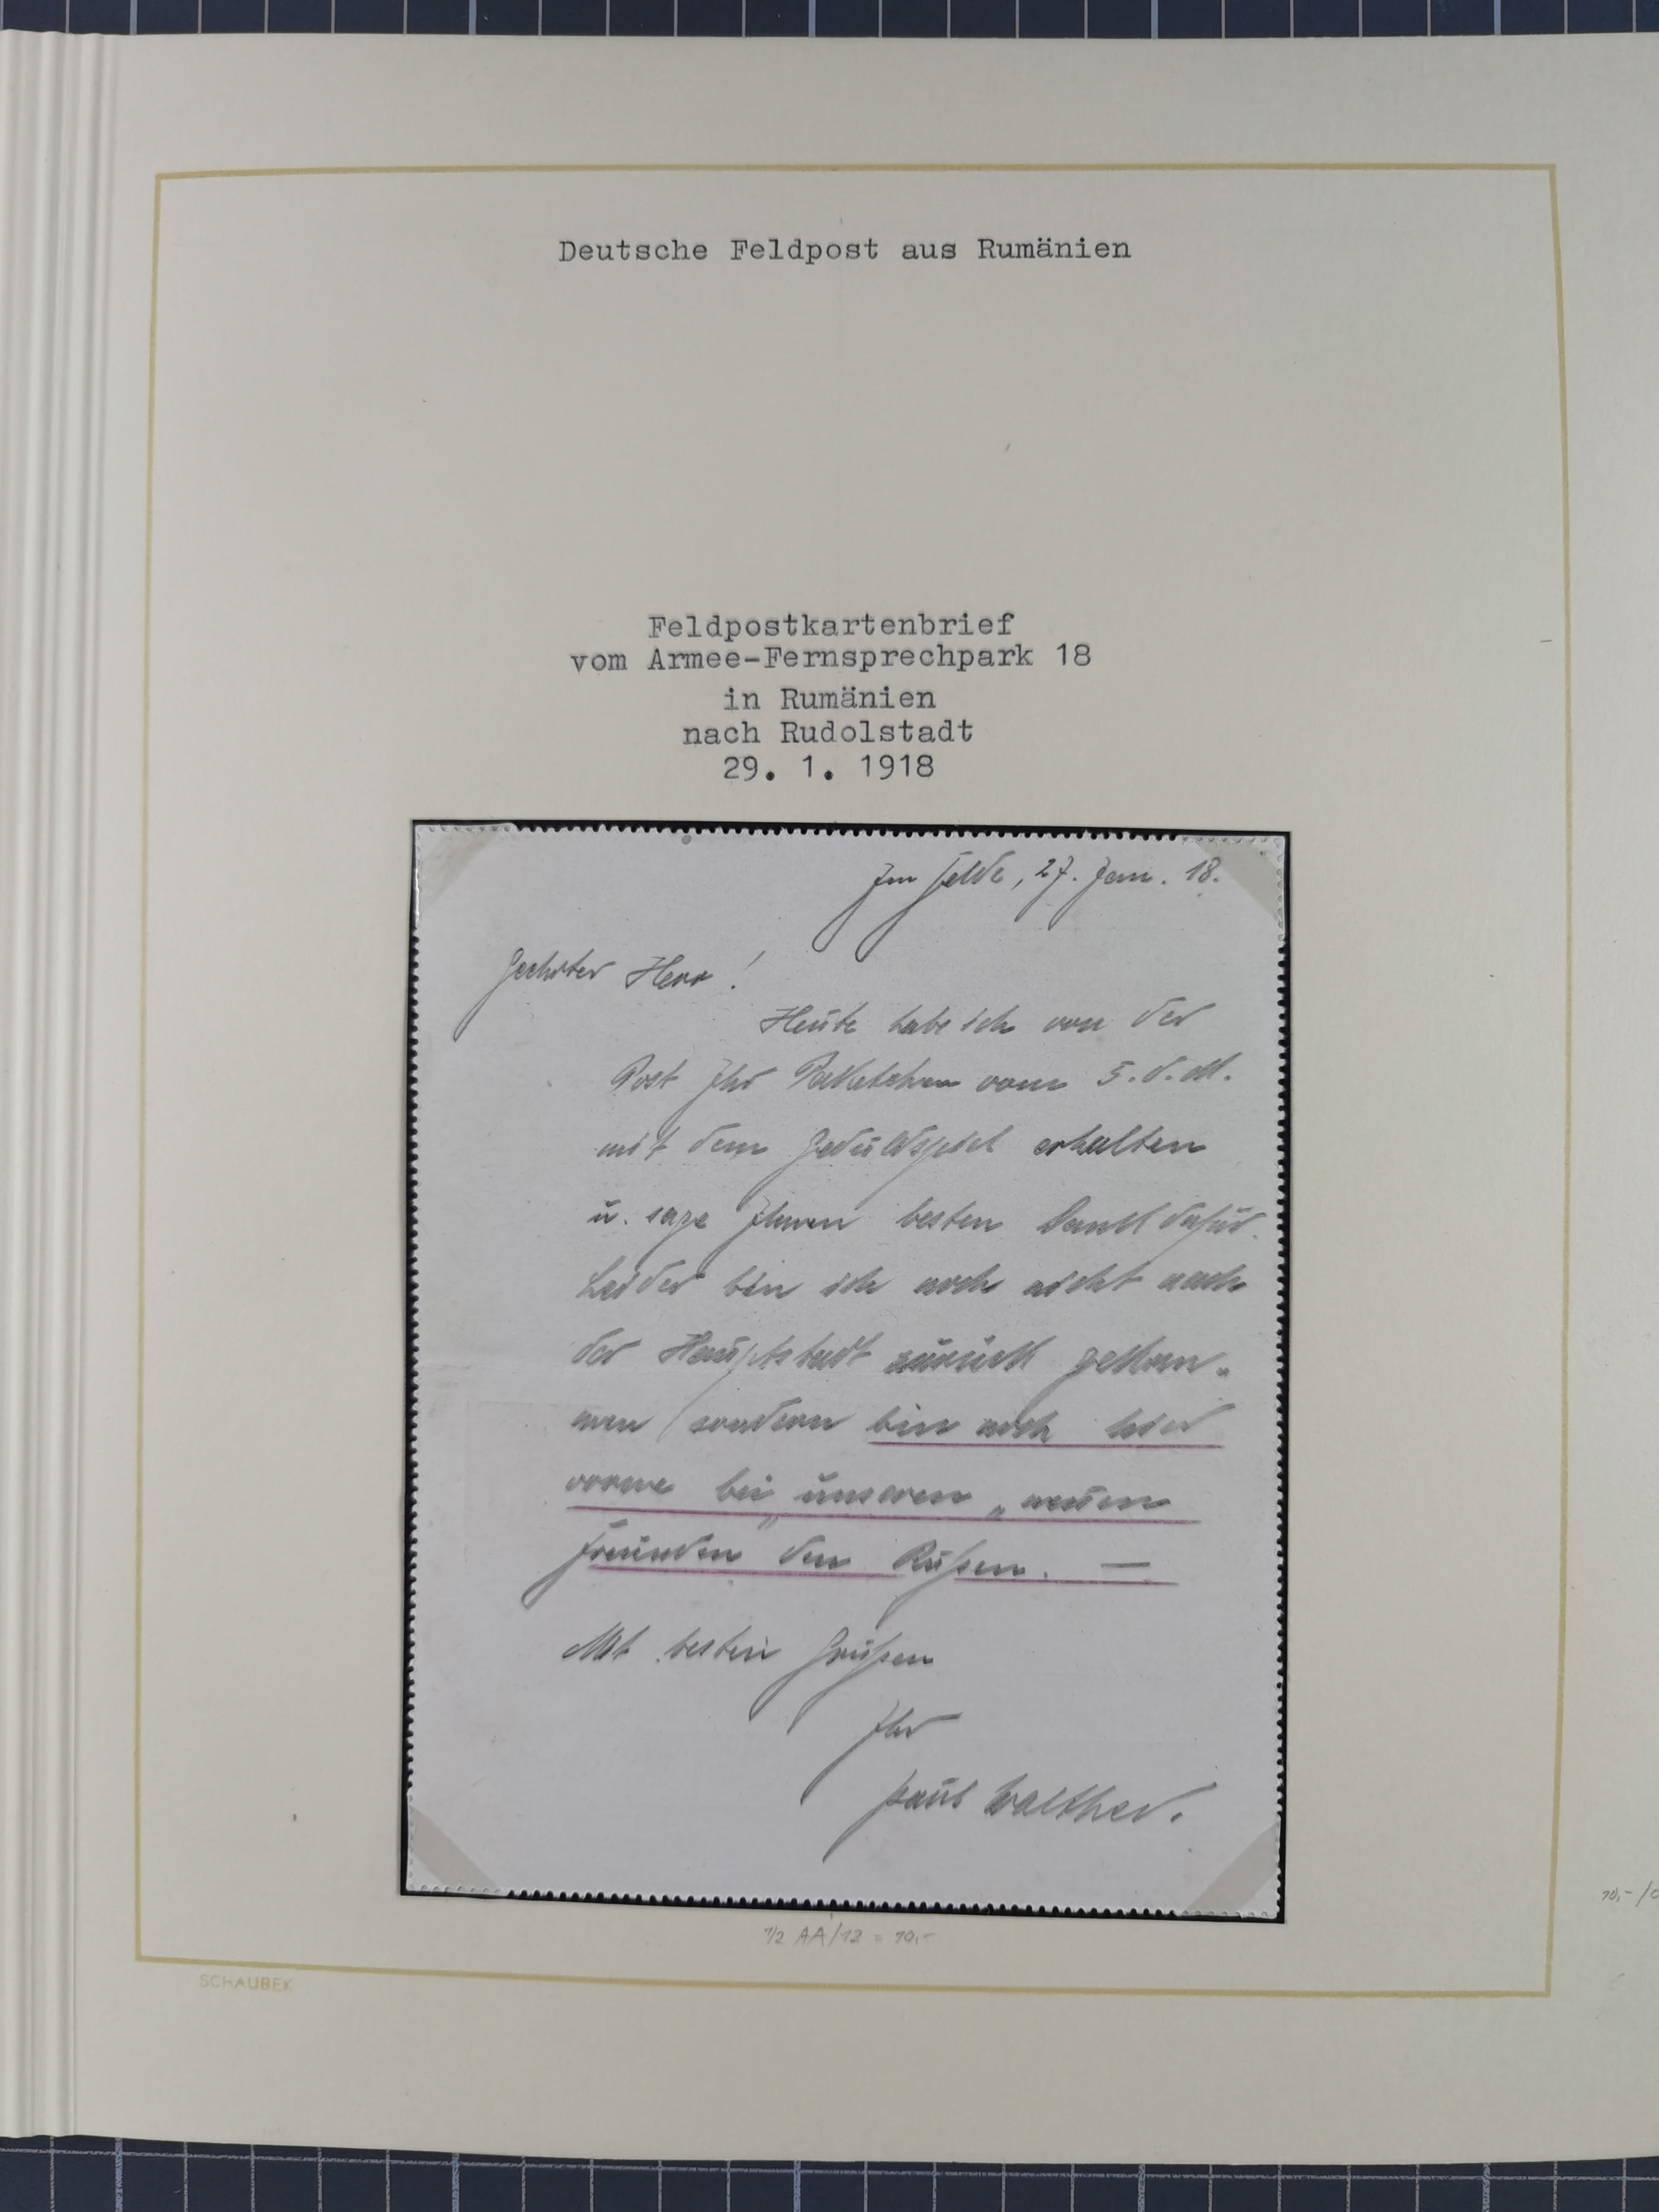 Deutsche Feldpost aus Rumänien
Feldpostkartenbrief
vom Armee-Fernsprechpark 18
in Rumänien
nach Rudolstadt
29. 1. 1918
Im Felde, 27. Jan. 18.
Geehrter Herr!
Heute habe ich von der
Post Ihr Paketchen vom 5. d. M.
mit dem Geduldspiel erhalten
u. sage Ihnen besten Dank dafür.
Leider bin ich noch nicht nach
der Hauptstadt zurück gekom-
men sondern bin noch hier
vorne bei unseren „neuen
Freunden" den Rußen. —
Mit besten Grüßen
Ihr
Paul Walther.
1/2 AA/12 = 10,-
10,-/
SCHAUBEK